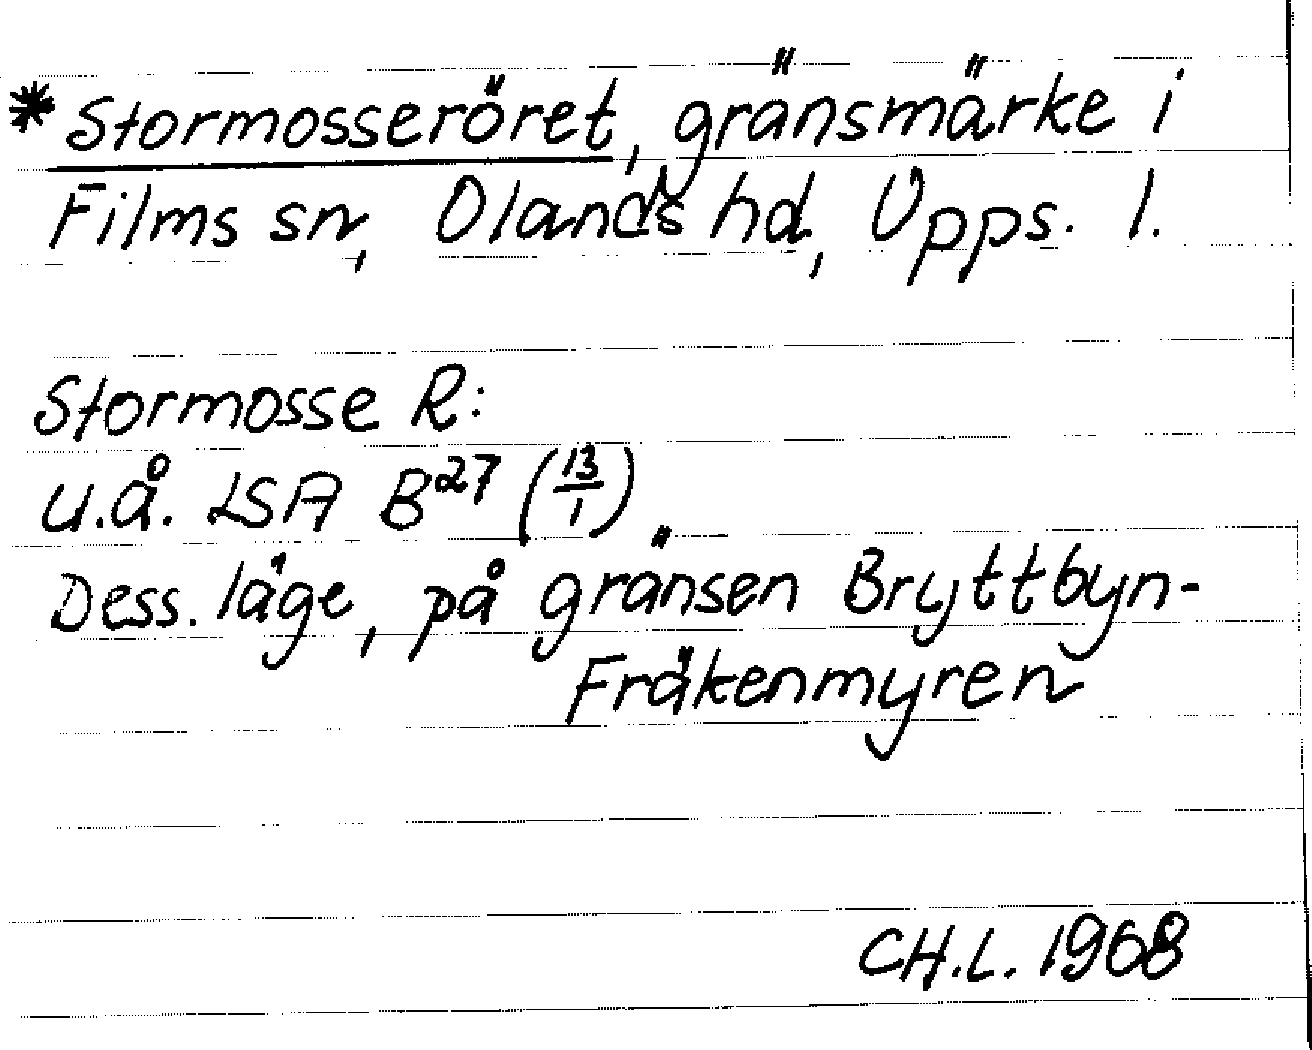 * Stormosseröret, gränsmärke i
Films sn, Olands hd, Upps. l.
Stormosse R:
u.å. LSA B²⁷ (13/1)
Dess. läge, på gränsen Bryttbyn-
Fräkenmyren
CH.L. 1968